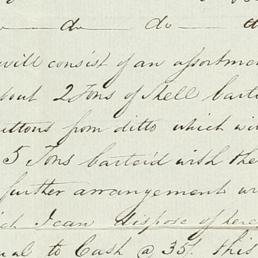 do do d
will consist of an assortme
bout 2 Tons of Shell barte
uttons from ditto which wi
5 Tons barterd with the
further arrangement w
ch I can dispose of here
ual to Cash @ 35/. this